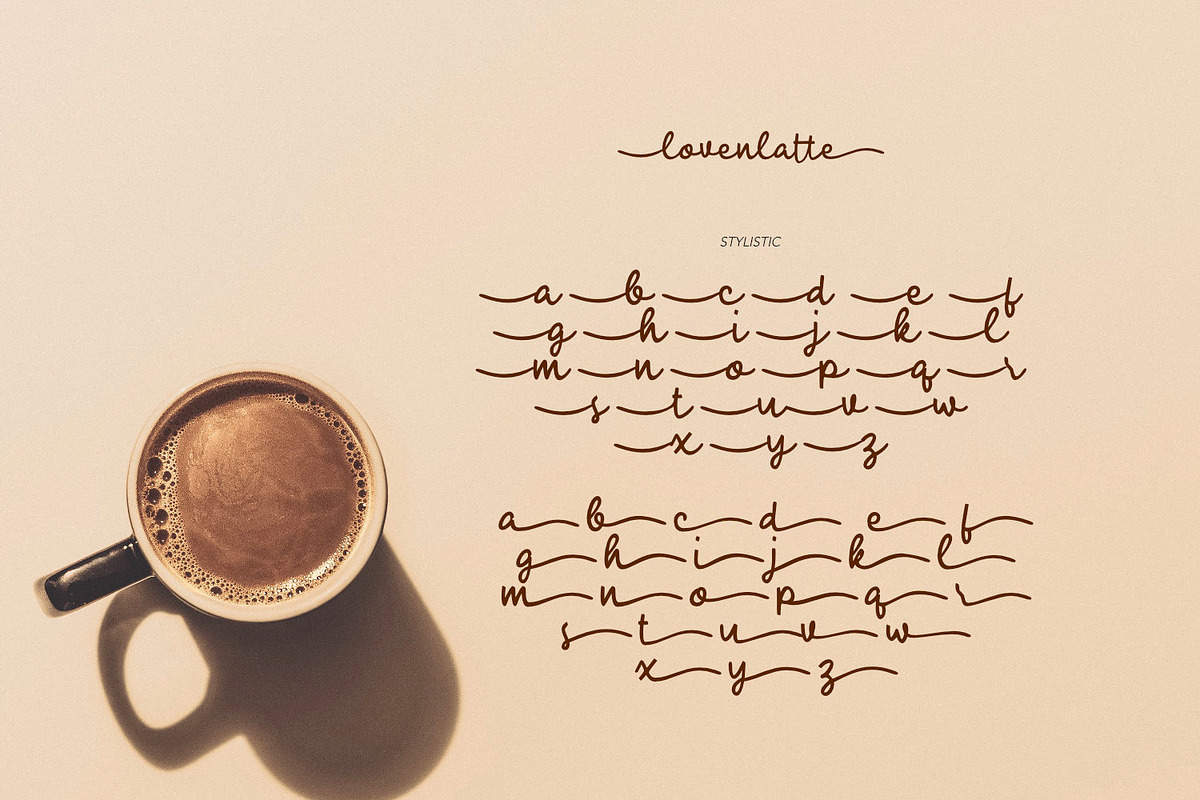 lovenlatte
STYLISTIC
a b c d e f
g h i j k l
m n o p q r
s t u v w
x y z
a b c d e f
g h i j k l
m n o p q r
s t u v w
x y z